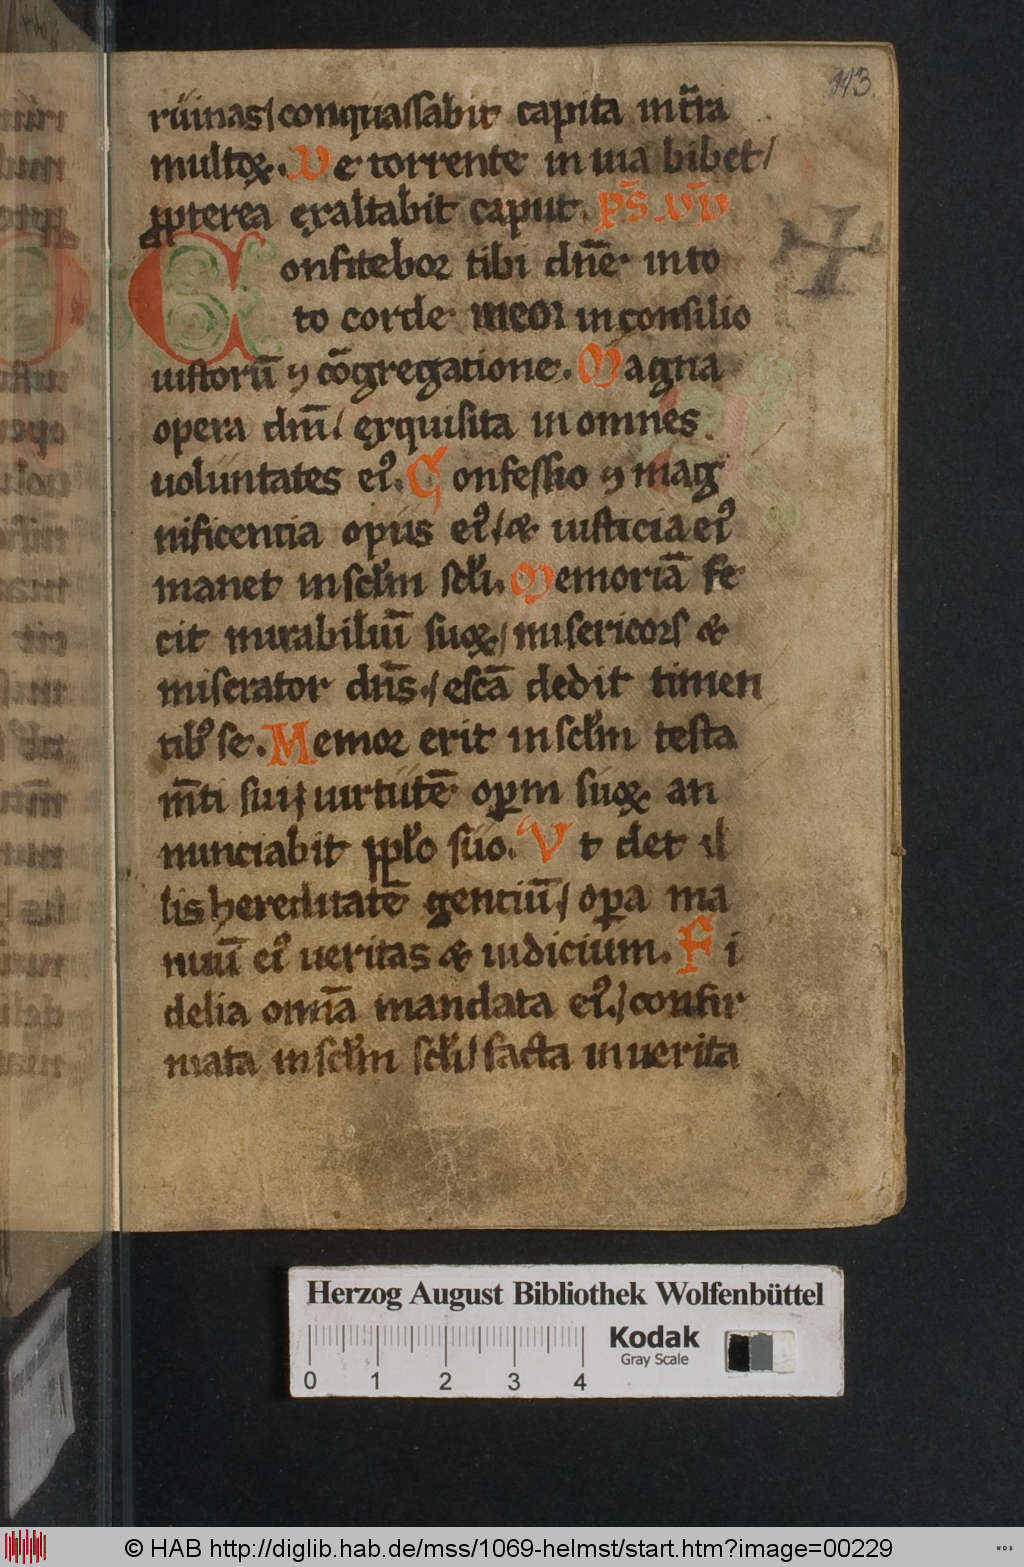 113.
ruinas / conquassabit capita in tr̄a
multoꝝ. De torrente in uia bibet /
ꝓpterea exaltabit caput. Ps̄
Confitebor tibi dn̄e in to
to corde meo / in consilio
iustorū ⁊ cōgregatione. Magna
opera dn̄i / exquisita in omnes
uoluntates eiꝰ. Confessio ⁊ mag
nificentia opus eiꝰ / & iusticia eiꝰ
manet in sc̄lm sc̄li. Memoriā fe
cit mirabiliū suoꝝ / misericors &
miserator dn̄s. / escā dedit timen
tibꝰ se. Memor erit in sc̄lm testa
m̄ti sui / uirtutē oꝑm suoꝝ an
nunciabit pp̄lo suo. Vt det il
lis hereditatē gentiū / oꝑa ma
nuū eiꝰ ueritas & iudicium. Fi
delia omīa mandata eiꝰ. / confir
mata in sc̄lm sc̄li / facta in uerita
Herzog August Bibliothek Wolfenbüttel
Kodak
Gray Scale
0 1 2 3 4
© HAB http://diglib.hab.de/mss/1069-helmst/start.htm?image=00229